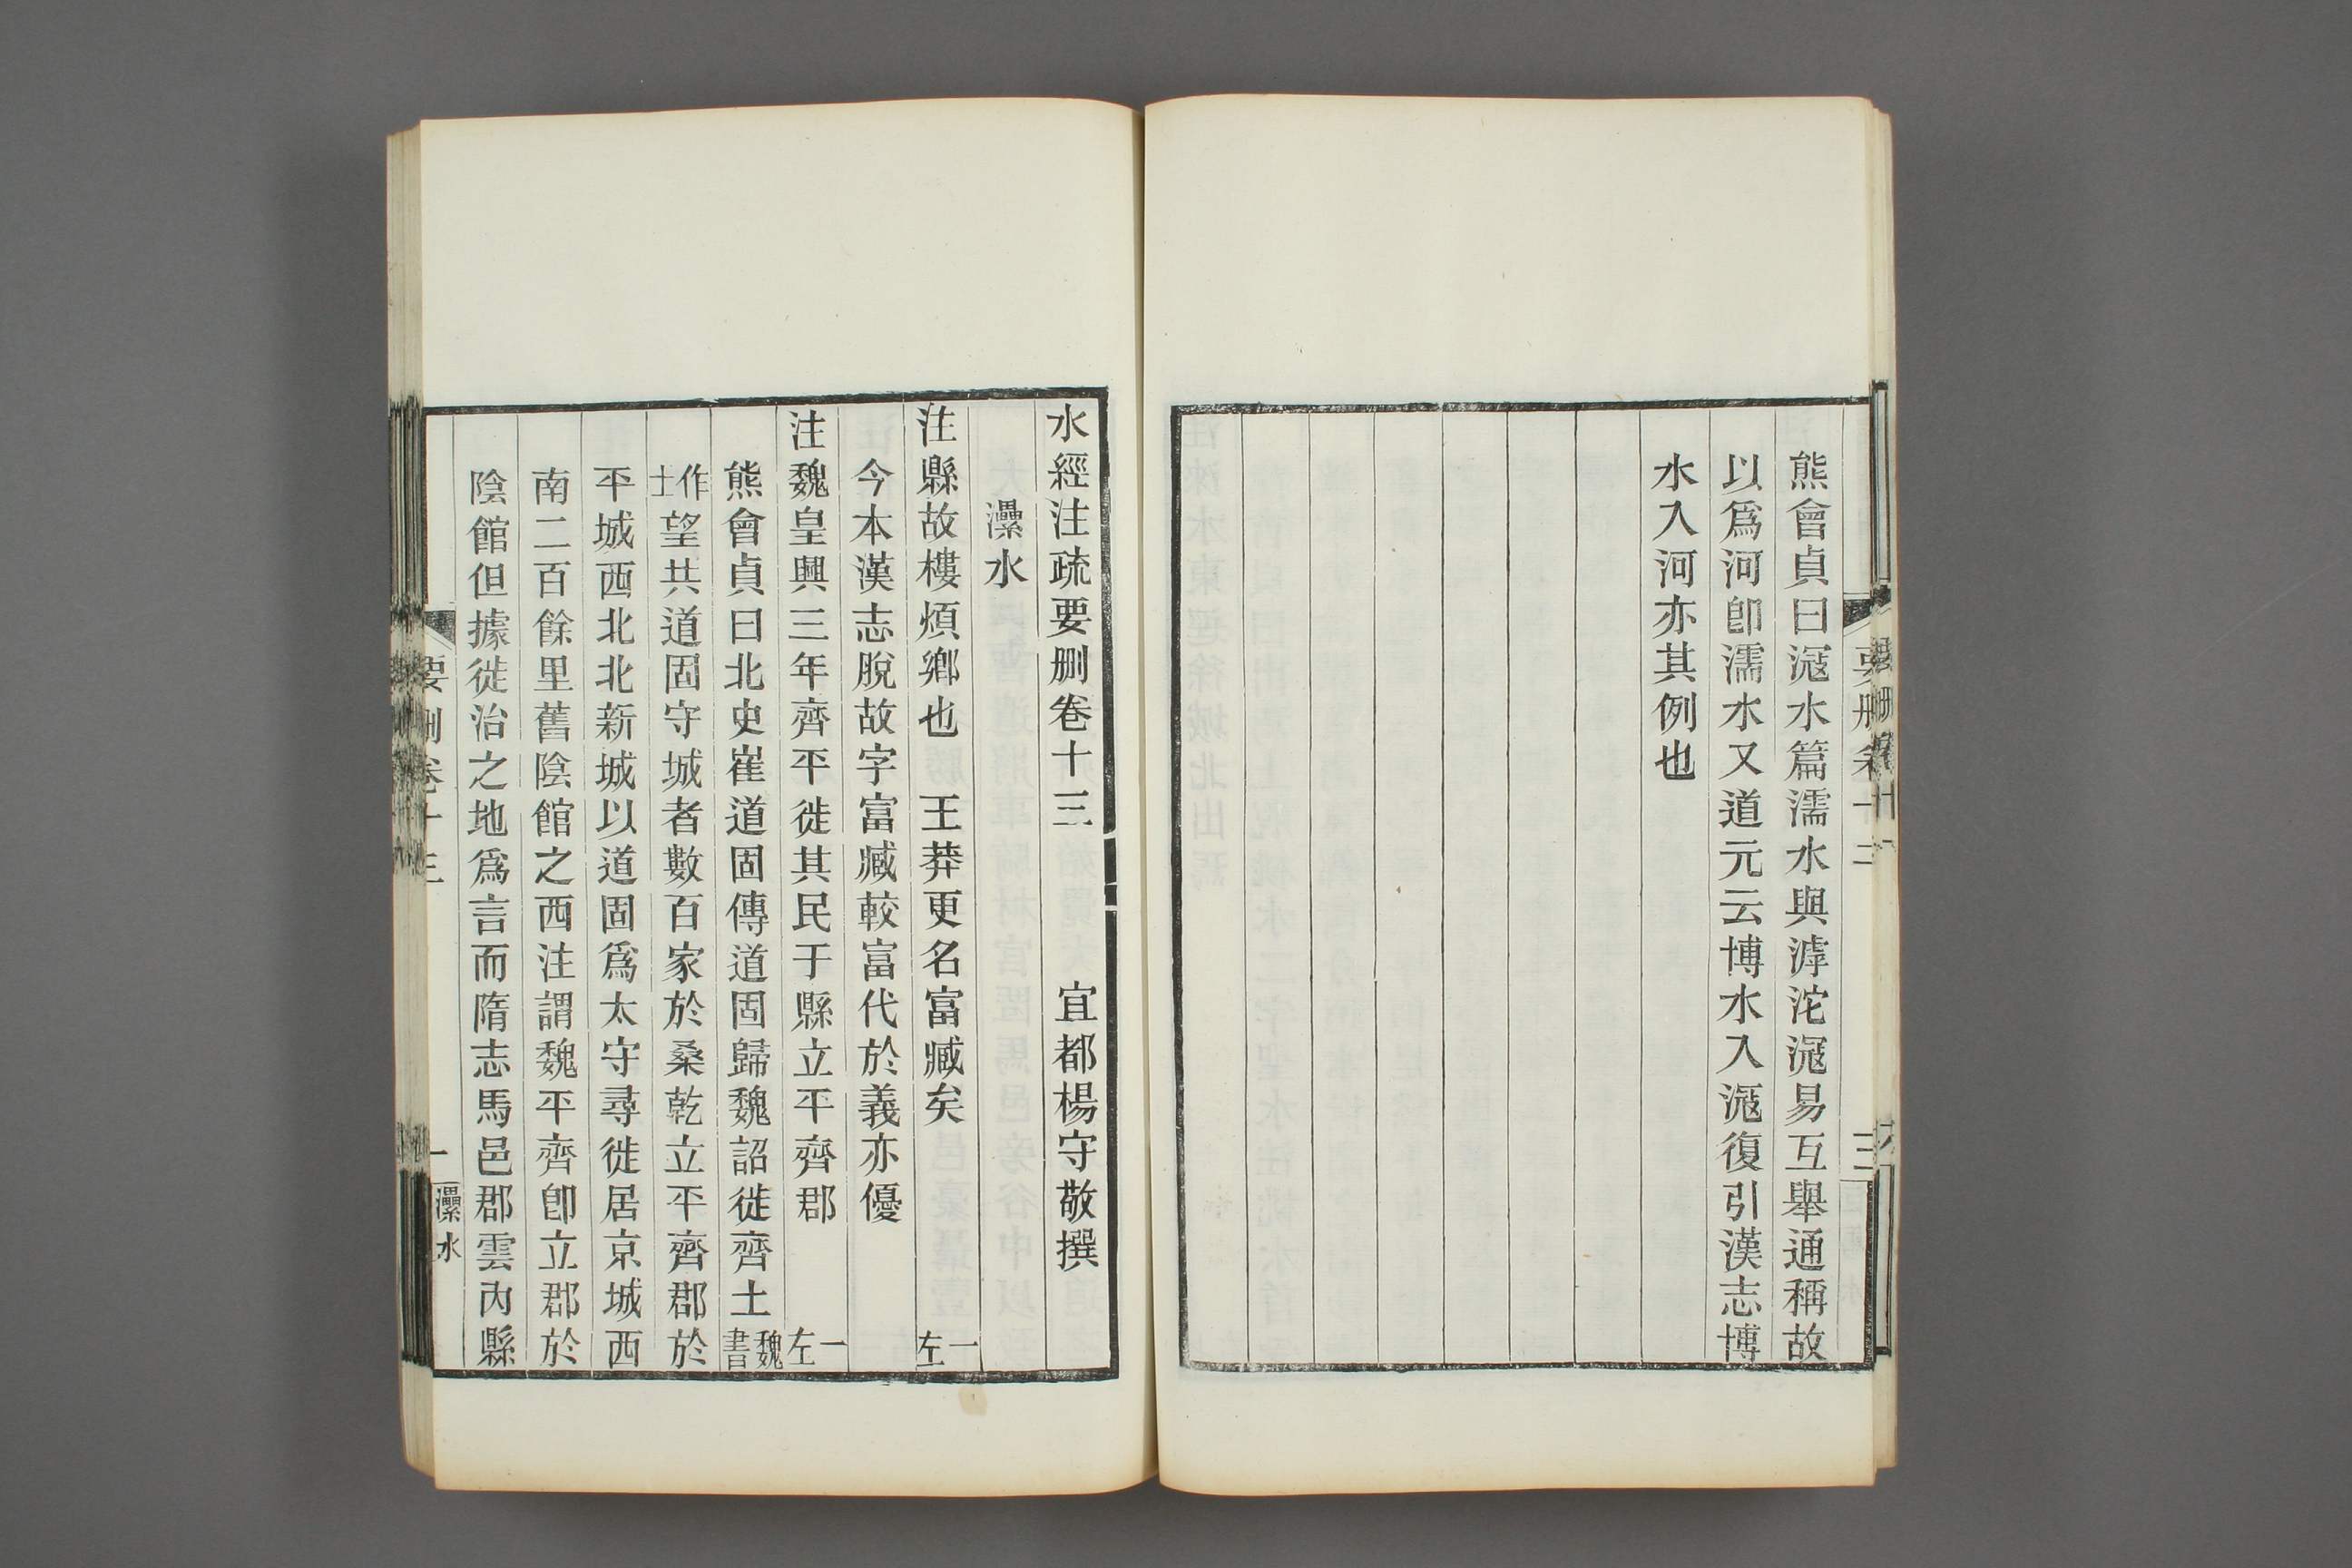 熊會貞曰㴲水篇濡水與滹沱㴲易互舉通稱故
以爲河卽濡水又道元云博水入㴲復引漢志博
水入河亦其例也
水經注疏要删卷十三 宜都楊守敬撰
㶟水
注縣故樓煩鄉也 王莽更名富臧矣 一左
今本漢志脫故字富臧較富代於義亦優
注魏皇興三年齊平徙其民于縣立平齊郡 一左
熊會貞曰北史崔道固傳道固歸魏詔徙齊土魏書
作士望共道固守城者數百家於桑乾立平齊郡於
平城西北北新城以道固爲太守尋徙居京城西
南二百餘里舊陰館之西注謂魏平齊卽立郡於
陰館但據徙治之地爲言而隋志馬邑郡雲內縣
要删卷十三 一 㶟水